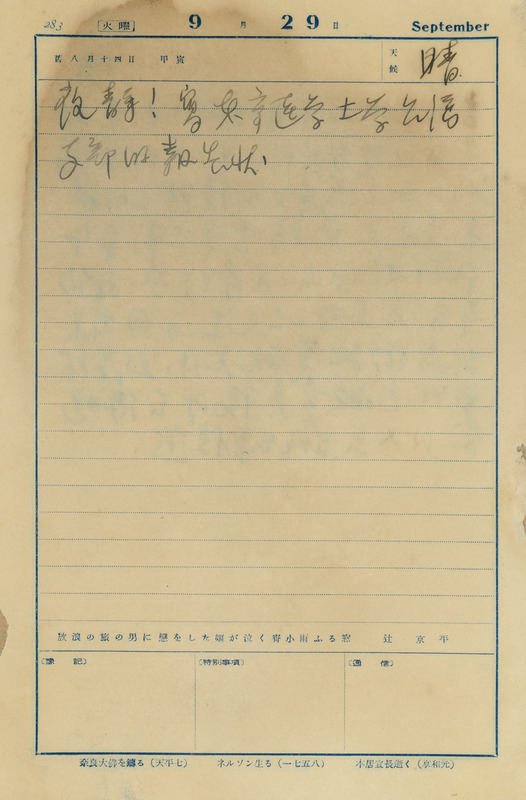 283 [火曜] 9月29日 September
舊八月十四日 甲寅 天候 晴
很静！寫東京医学士学会
支部的報告状
放浪の旅の男に戀をした娘が泣く宵小雨ふる窓 辻 京 平
〔豫 記〕 〔特別事項〕 〔通 信〕
奈良大佛を鑄る（天平七） ネルソン生る（一七五八） 本居宣長逝く（享和元）